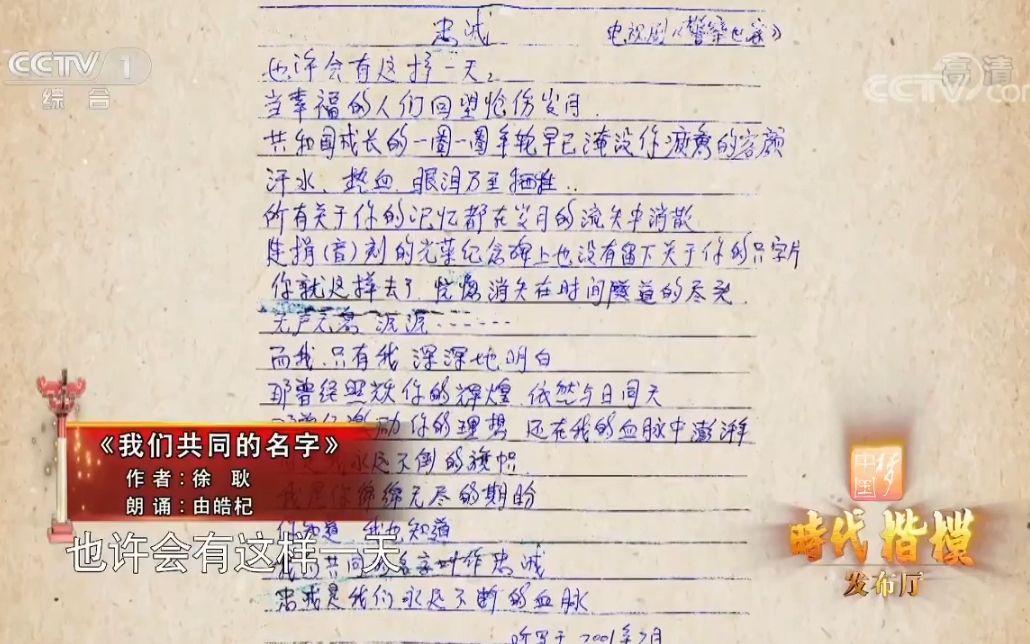 CCTV 1
综合
高清
CCTV.com
忠诚
电视剧《警察世家》
也许会有这样一天,
当幸福的人们回望沧伤岁月.
共和国成长的一圈一圈年轮早已淹没你疲惫的容颜
汗水、热血、眼泪乃至牺牲..
所有关于你的记忆都在岁月的流失中消散
连捐(音)刻的光荣纪念碑上也没有留下关于你的只字片
你就这样去了 恍惚消失在时间隧道的尽头.
无声无息 沉沉……
而我.只有我 深深地明白
那曾经照耀你的辉煌 依然与日同天
你的理想 还在我的血脉中澎湃
永远不倒的旗帜
我是你绵绵无尽的期盼
你知道 我也知道
我们共同的名字叫作忠诚
忠诚是我们永远不断的血脉
写于2001年2月
《我们共同的名字》
作者:徐 耿
朗诵:由皓杞
也许会有这样一天
中国梦
時代楷模
发布厅